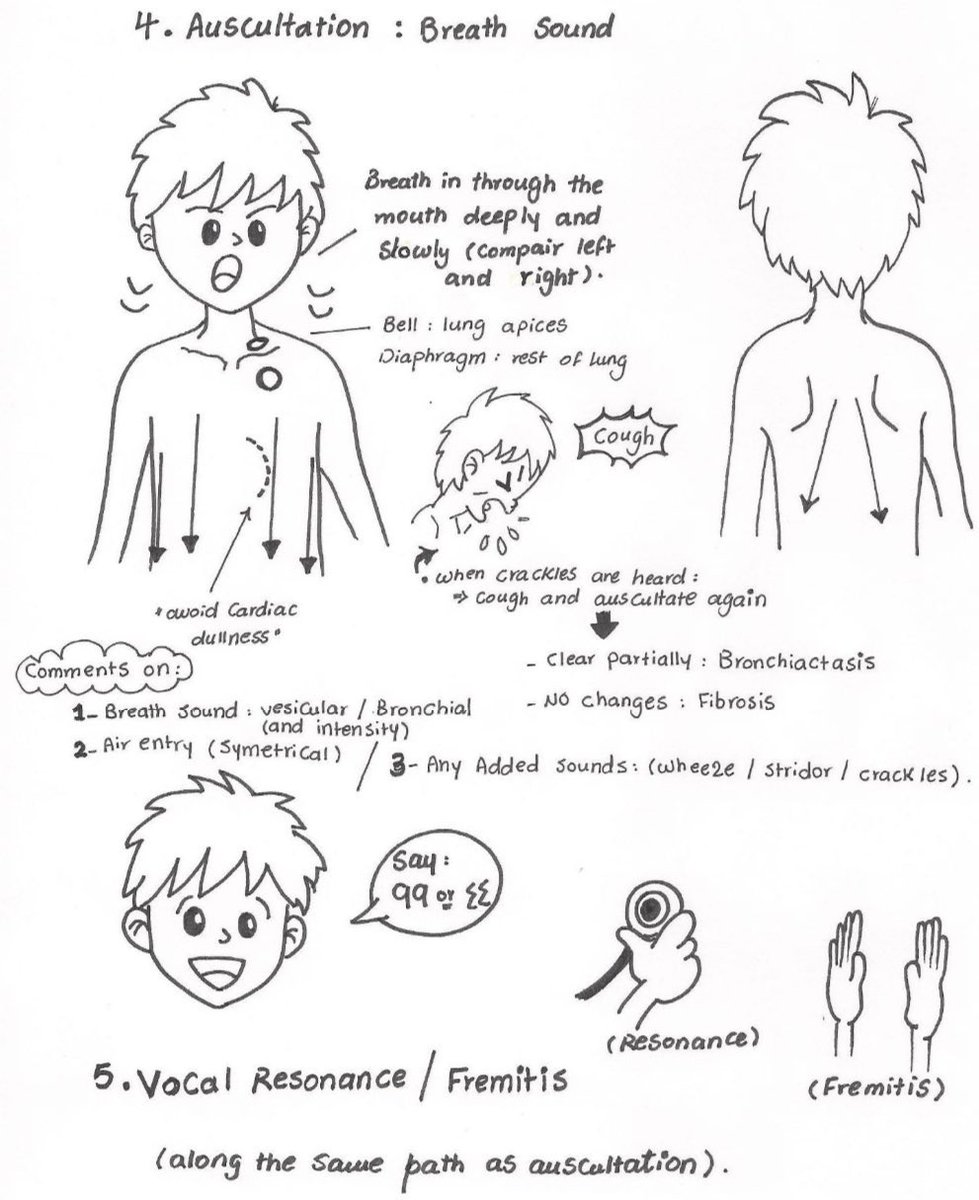 4. Auscultation : Breath Sound
Breath in through the
mouth deeply and
Slowly (compair left
and right).
Bell : lung apices
Diaphragm : rest of lung
Cough
. when crackles are heard :
⇒ cough and auscultate again
*avoid Cardiac
dullness*
- Clear partially : Bronchiactasis
- NO changes : Fibrosis
Comments on :
1- Breath Sound : vesicular / Bronchial
(and intensity)
2- Air entry (Symetrical) / 3- Any Added sounds : (wheeze / stridor / crackles).
Say :
99 or ٤٤
(Resonance)
(Fremitis)
5. Vocal Resonance / Fremitis
(along the same path as auscultation).